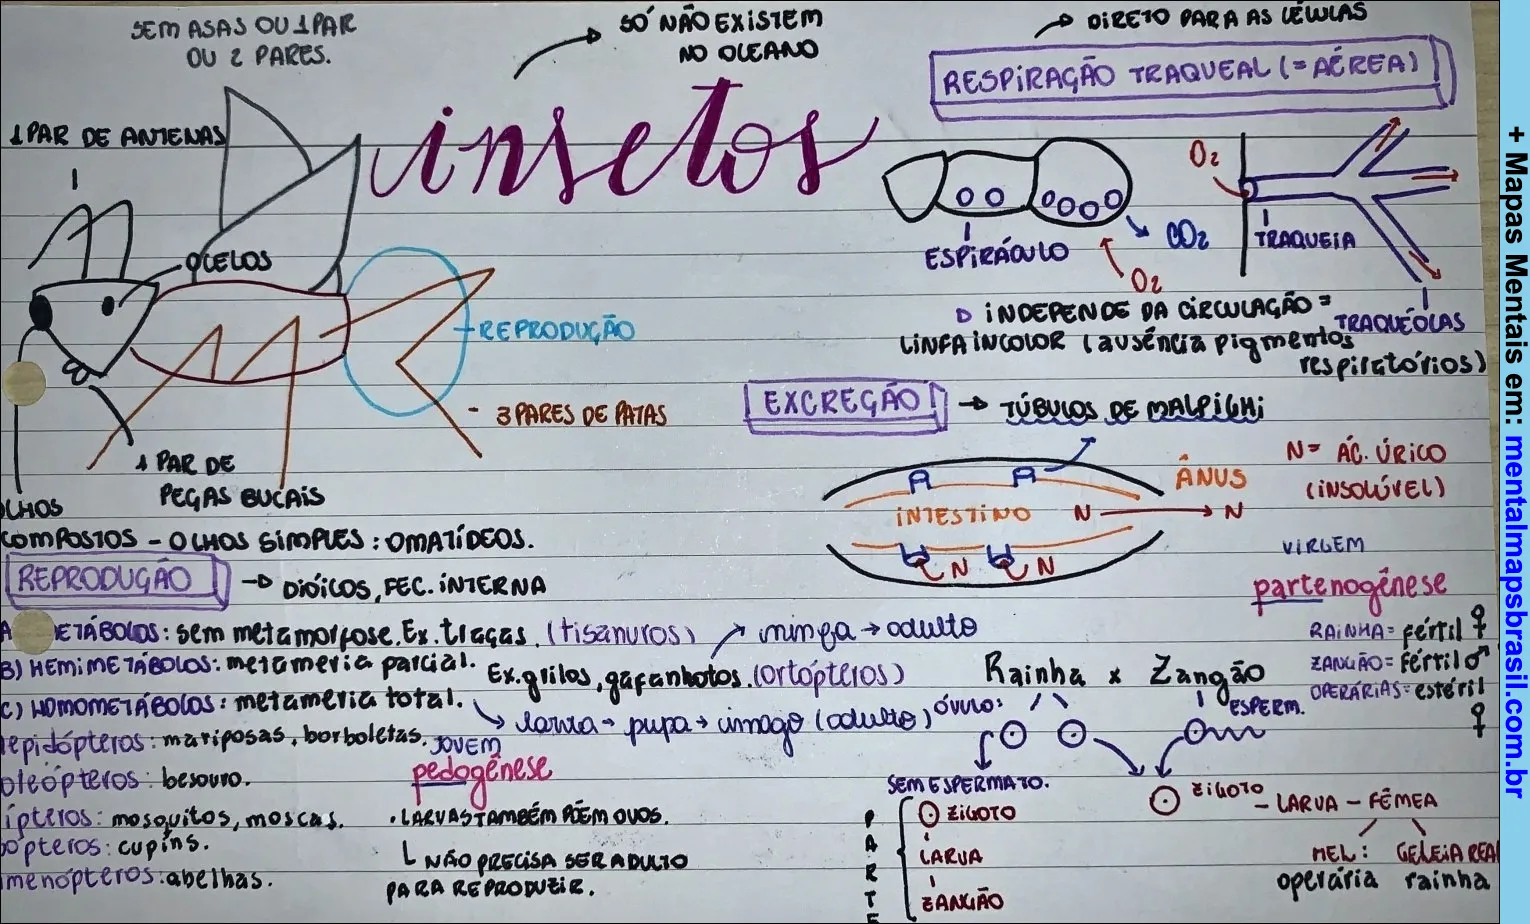 SEM ASAS OU 1 PAR
OU 2 PARES.
SÓ NÃO EXISTEM
NO OCEANO
DIRETO PARA AS CÉLULAS
RESPIRAÇÃO TRAQUEAL (= AÉREA)
insetos
1 PAR DE ANTENAS
OCELOS
REPRODUÇÃO
3 PARES DE PATAS
1 PAR DE
PEÇAS BUCAIS
LHOS
COMPOSTOS - OLHOS SIMPLES: OMATÍDEOS.
ESPIRÁCULO
CO2
O2
O2
TRAQUEIA
TRAQUÉOLAS
INDEPENDE DA CIRCULAÇÃO =
LINFA INCOLOR (ausência pigmentos
respiratórios)
EXCREÇÃO → TÚBULOS DE MALPIGHI
N = ÁC. ÚRICO
(INSOLÚVEL)
ÂNUS
INTESTINO N → N
N N
REPRODUÇÃO → DIÓICOS, FEC. INTERNA
A ETÁBOLOS: sem metamorfose. Ex. traças. (tisanuros)
ninfa → adulto
B) HEMIMETÁBOLOS: metameria parcial. Ex. grilos, gafanhotos. (ortópteros)
C) HOMOMETÁBOLOS: metameria total.
larva → pupa → imago (adulto)
lepidópteros: mariposas, borboletas.
oleópteros: besouro.
ípteros: mosquitos, moscas.
sópteros: cupins.
menópteros: abelhas.
JOVEM
pedogênese
. LARVAS TAMBÉM PÕEM OVOS.
NÃO PRECISA SER ADULTO
PARA REPRODUZIR.
VIRGEM
partenogênese
RAINHA = fértil ♀
ZANGÃO = fértil ♂
OPERÁRIAS = estéril
♀
Rainha x Zangão
ÓVULO:
ESPERM.
SEM ESPERMATO.
PARTE
ZIGOTO
LARVA
ZANGÃO
ZIGOTO - LARVA - FÊMEA
MEL: GELEIA REA
operária rainha
+ Mapas Mentais em: mentalmapsbrasil.com.br